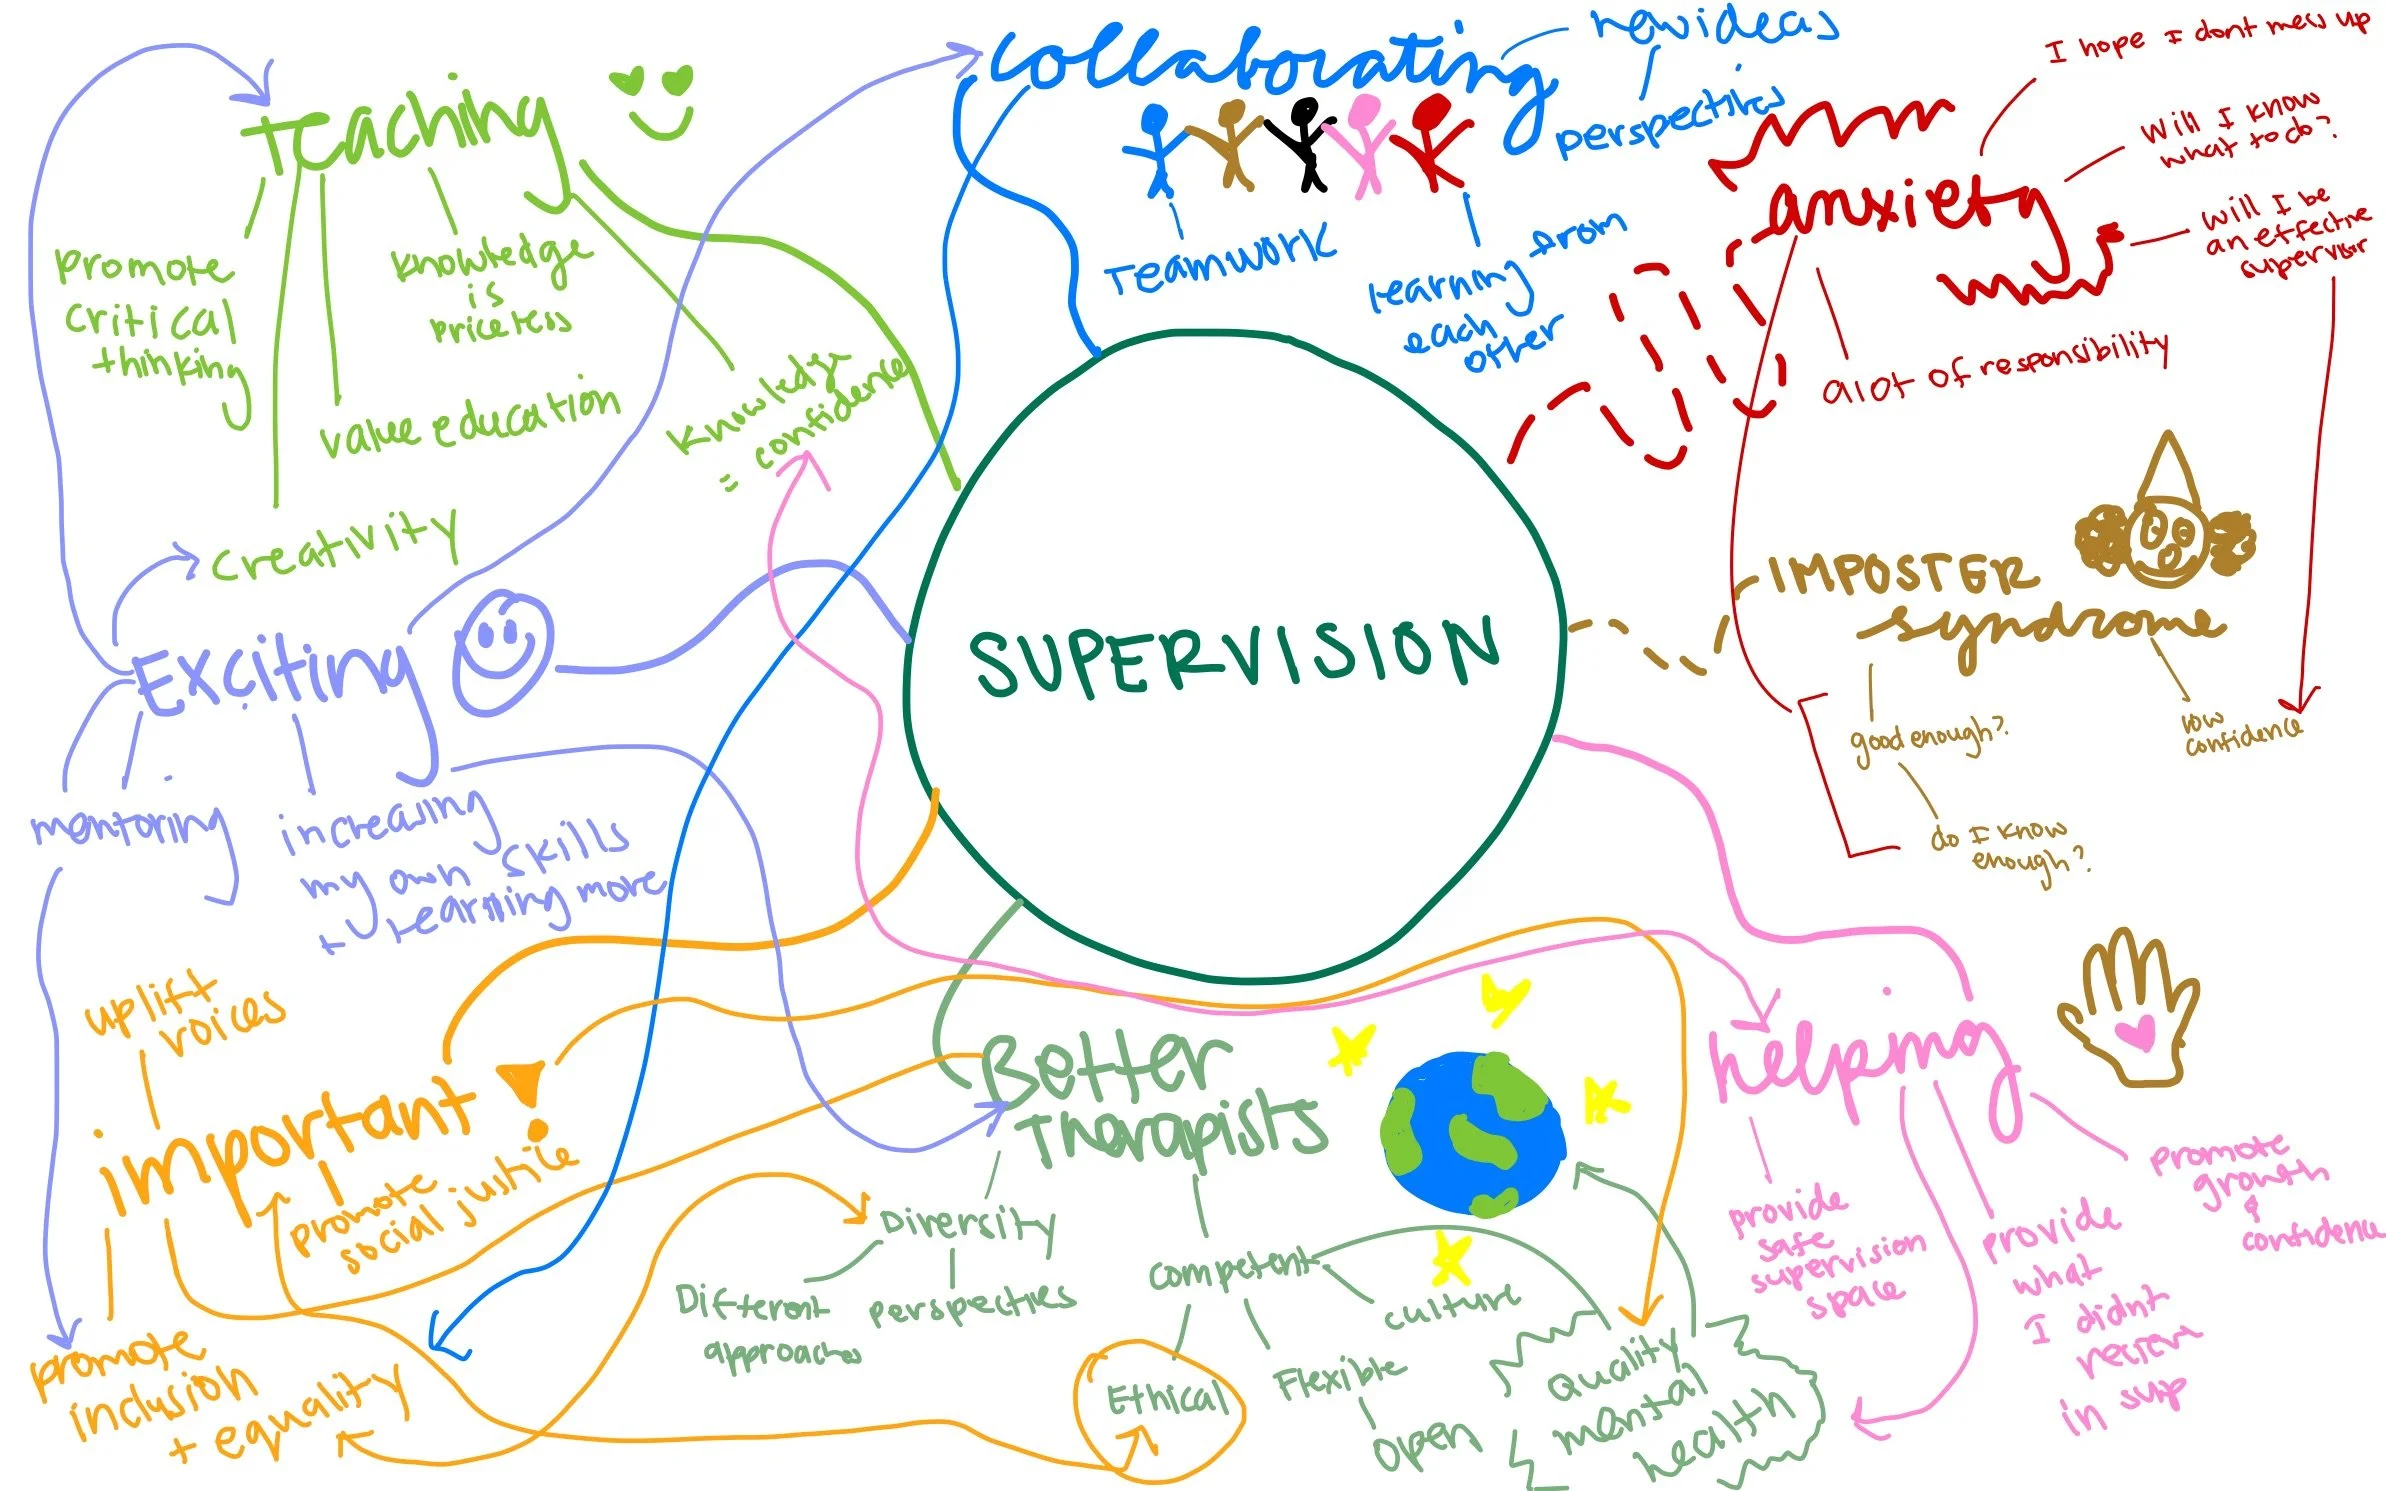 SUPERVISION
Teaching
promote
critical
thinking
knowledge
is
priceless
value education
knowledge
= confidence
creativity
Collaborating
new ideas
perspectives
Teamwork
learning from
each
other
anxiety
I hope I dont mess up
Will I know
what to do?
will I be
an effective
supervisor
alot of responsibility
IMPOSTER
syndrome
good enough?
do I know
enough?
low
confidence
Exciting
mentoring
increasing
my own skills
+ learning more
uplift
voices
important
promote
social justice
promote
inclusion
+ equality
Better
Therapists
Diversity
Different
approaches
perspectives
competent
culture
Ethical
Flexible
open
Quality
mental
health
helping
provide
safe
supervision
space
provide
what
I didnt
in sup
promote
growth
&
confidence